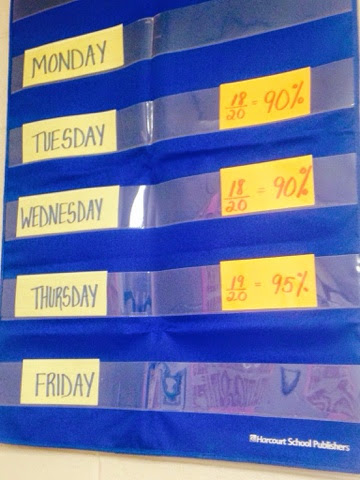 MONDAY
TUESDAY
18/20 = 90%
WEDNESDAY
18/20 = 90%
THURSDAY
19/20 = 95%
FRIDAY
Harcourt School Publishers